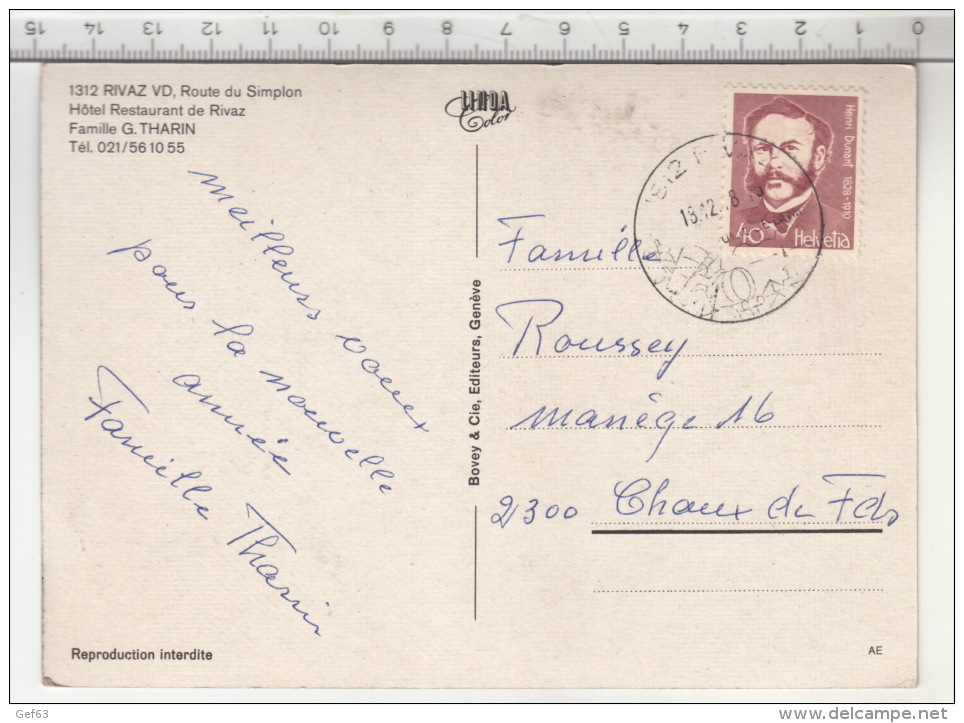 15 14 13 12 11 10 9 8 7 6 5 4 3 2 1 0
1312 RIVAZ VD, Route du Simplon
Hôtel Restaurant de Rivaz
Famille G. THARIN
Tél. 021/56 10 55
LINDA
Color
Henri Dunant 1828-1910
40
Helvetia
18.12
meilleurs voeux
pour la nouvelle
année
Famille Tharin
Bovey & Cie, Editeurs, Genève
Famille
Roussey
manège 16
2300 Chaux du Fds
Reproduction interdite
AE
Gef63
http://www.delcampe.net